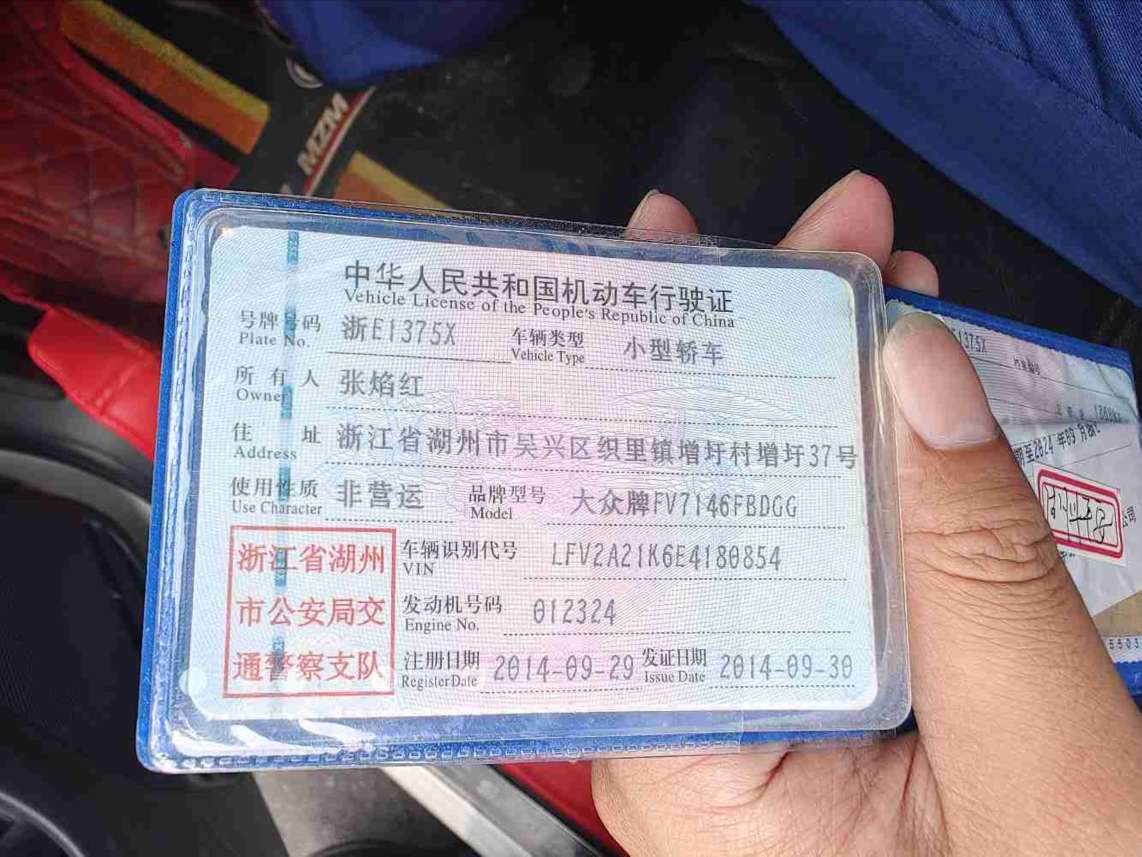 MZM
中华人民共和国机动车行驶证
Vehicle License of the People's Republic of China
号牌号码 浙E1375X 车辆类型 小型轿车
Plate No. Vehicle Type
所有人 张焰红
Owner
住址 浙江省湖州市吴兴区织里镇增圩村增圩37号
Address
使用性质 非营运 品牌型号 大众牌FV7146FBDGG
Use Character Model
浙江省湖州
市公安局交
通警察支队
车辆识别代号 LFV2A21K6E4180854
VIN
发动机号码 012324
Engine No.
注册日期 2014-09-29 发证日期 2014-09-30
Register Date Issue Date
1375X
至2024年09月
公司